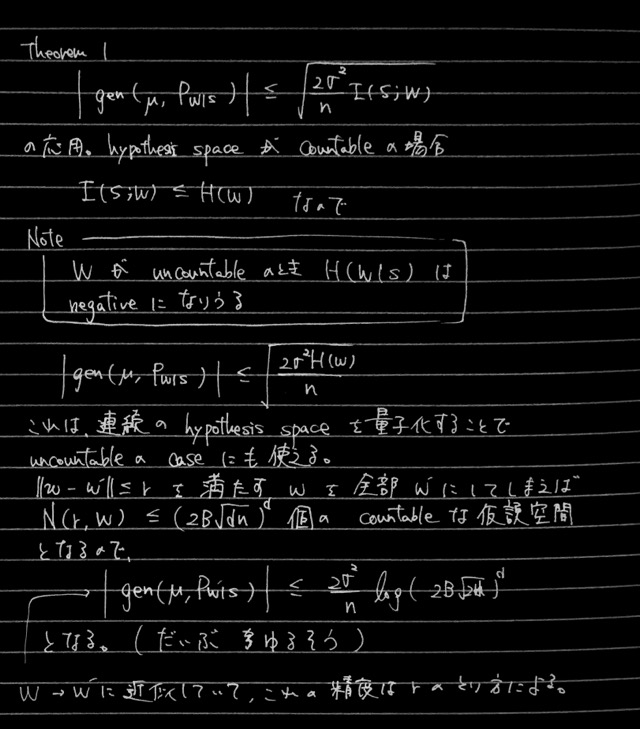 Theorem 1
| gen(μ, P_{W|S}) | ≤ √(2σ²/n I(S;W))
の応用。hypothesis space が countable の場合
I(S;W) ≤ H(W) なので
Note
W が uncountable のとき H(W|S) は
negative になりうる
| gen(μ, P_{W|S}) | ≤ √(2σ²H(W)/n)
これは、連続の hypothesis space を量子化することで
uncountable の case にも使える。
||w - w'|| ≤ r を満たす w を全部 w' にしてしまえば
N(r, W) ≤ (2B√dn)^d 個の countable な仮説空間
となるので、
| gen(μ, P_{W'|S}) | ≤ 2σ²/n log(2B√)^d
となる。(だいぶゆるそう)
W → W' に近似していて、これの精度は r のとり方による。